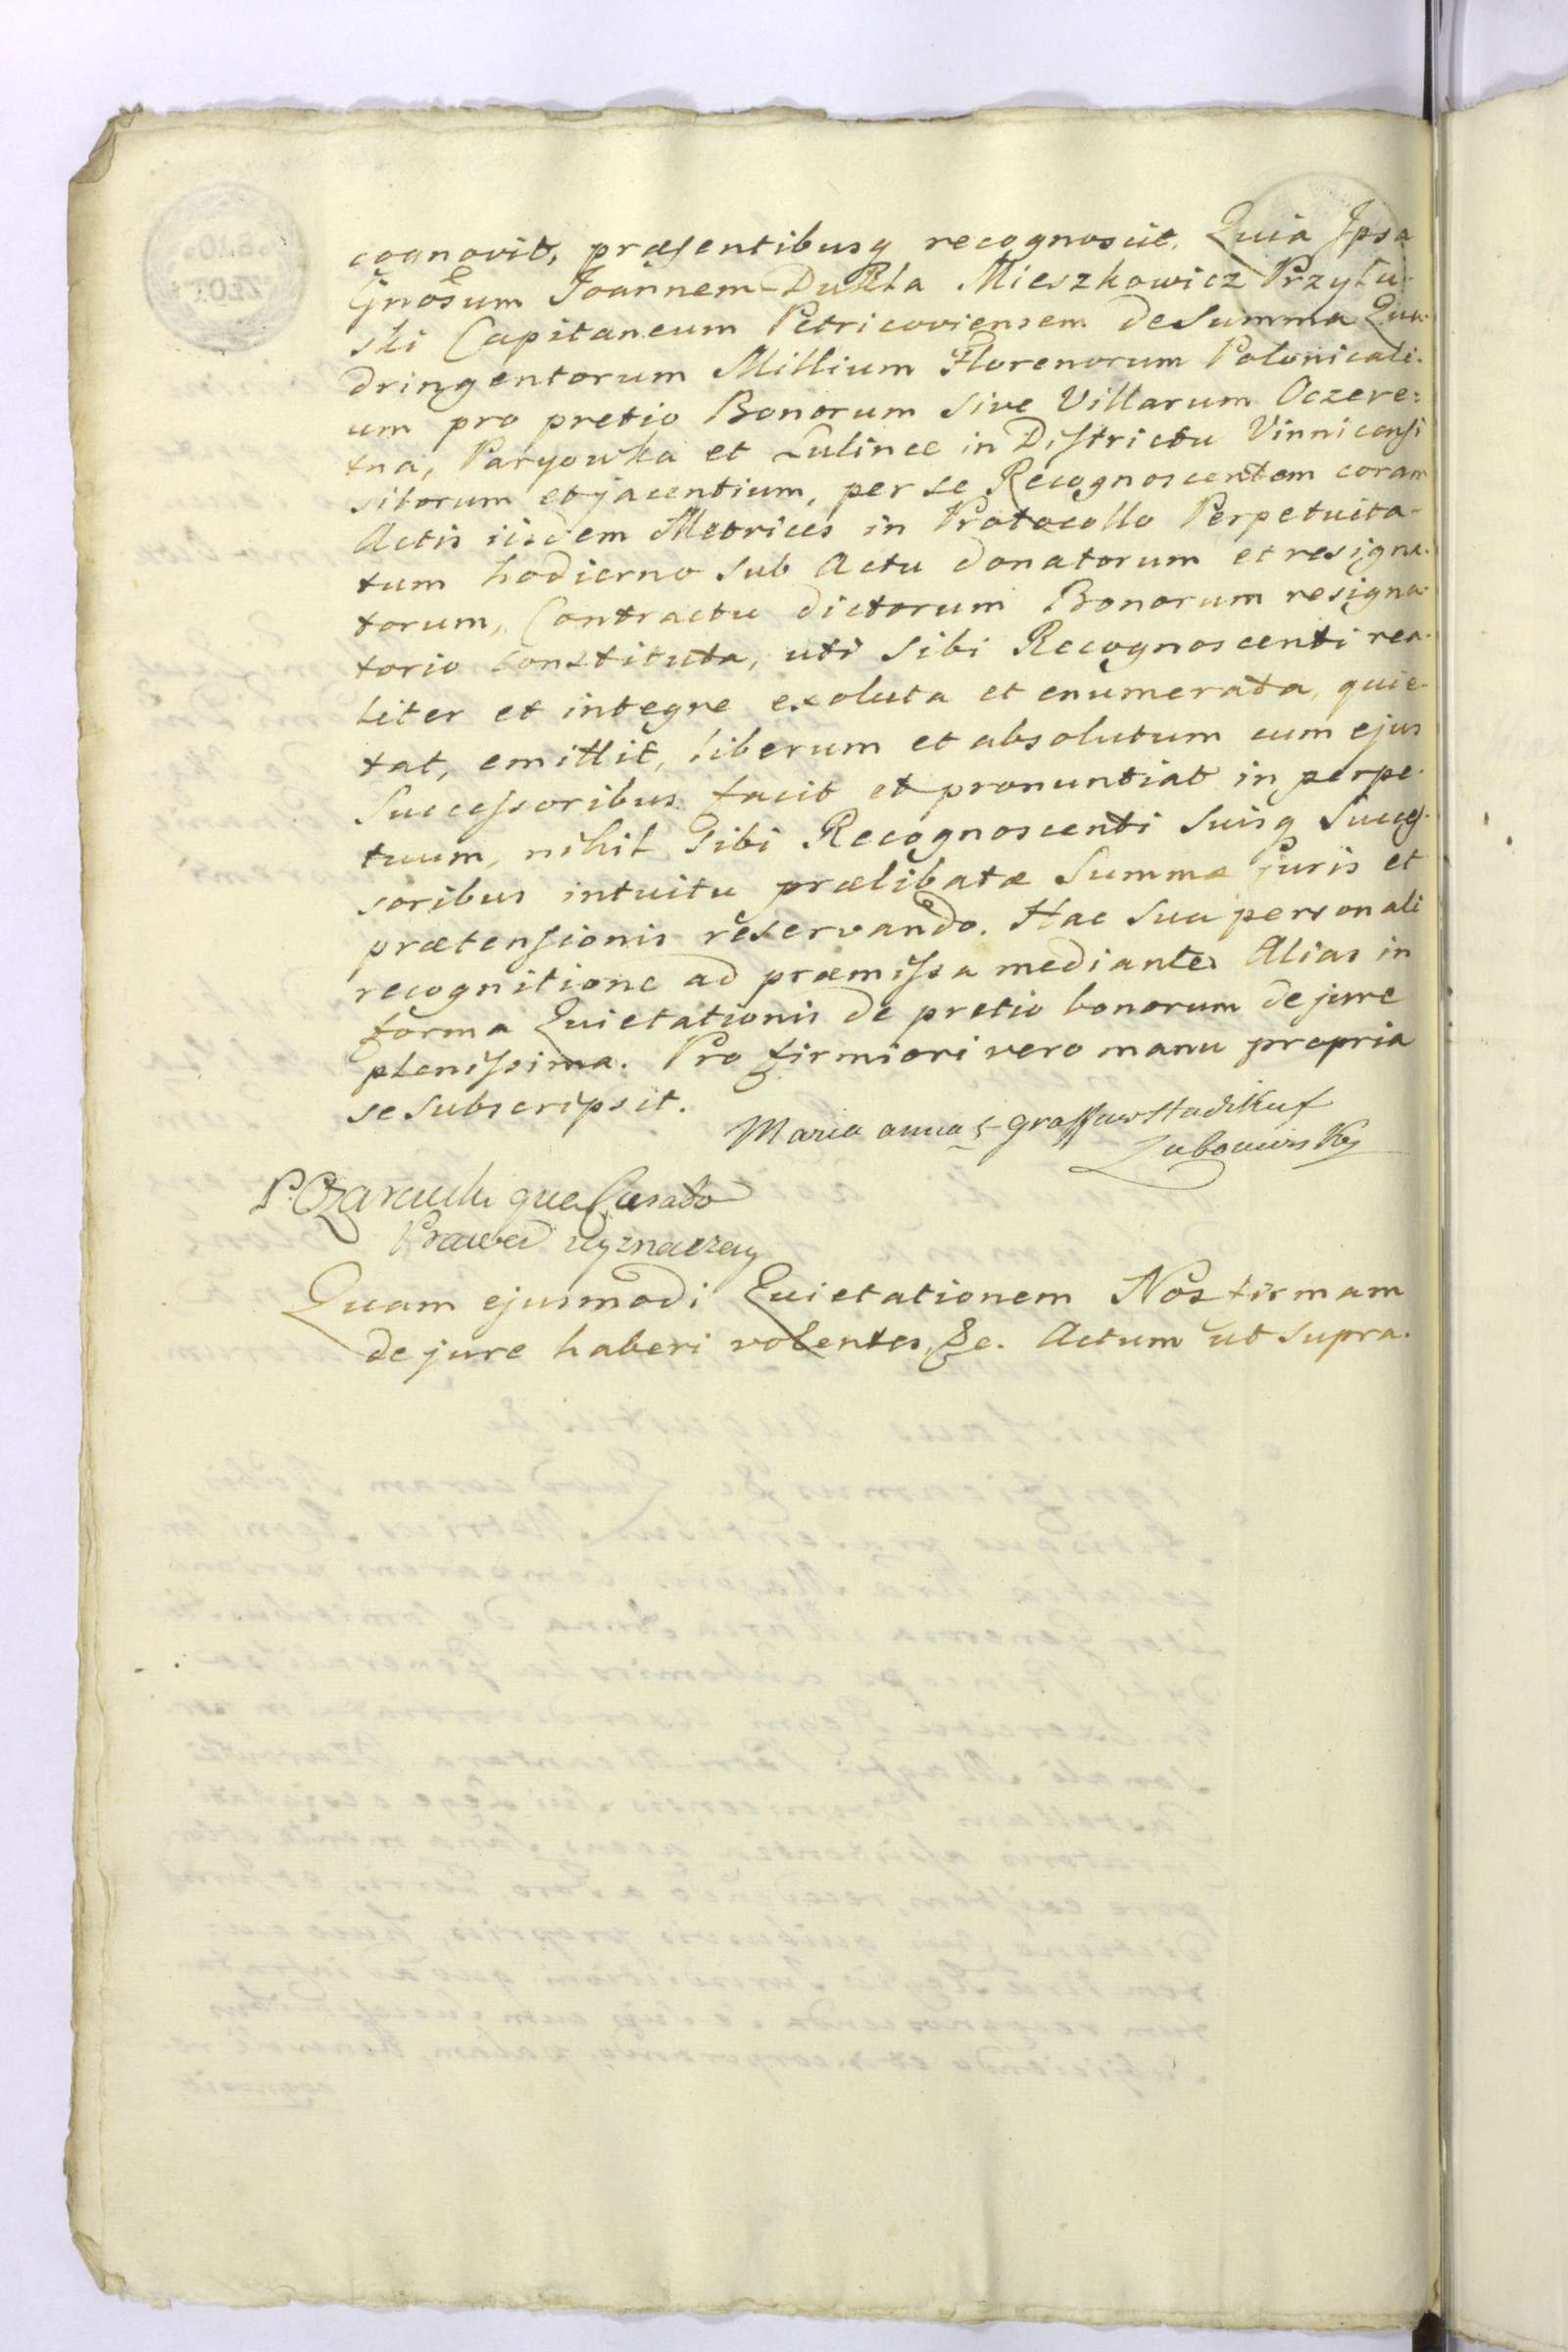 cognovit, præsentibusq recognoscit. Quia Ipsa
Gnosum Joannem Dukla Mieszkowicz Przyłu-
ski Capitaneum Petricoviensem de Summa Qua-
dringentorum Millium Florenorum Polonicali-
um pro pretio Bonorum sive Villarum Oczere-
tna, Paryowka et Lulince in Districtu Vinnicensi
sitorum et jacentium, per se Recognoscentem coram
Actis iisdem Metrices in Protocollo Perpetuita-
tum hodierno sub Actu donatorum et resigna-
torum, Contractu dictorum Bonorum resigna-
torio constituta, uti sibi Recognoscenti rea-
liter et integre exoluta et enumerata, quie-
tat, emittit, liberum et absolutum cum ejus
Successoribus facit et pronuntiat in perpe-
tuum, nihil sibi Recognoscenti suisq succes-
soribus intuitu prælibatæ Summæ juris et
prætensionis reservando. Hac sua personali
recognitione ad præmissa mediante. Alias in
forma Quietationis de pretio bonorum de jure
plenissima. Pro firmiori vero manu propria
se subscripsit.
Maria anna
Lubomirsky
P. Ozarowski
Prawa wyznaczony
Quam ejusmodi Quietationem Nos firmam
de jure haberi volentes &c. Actum ut supra.